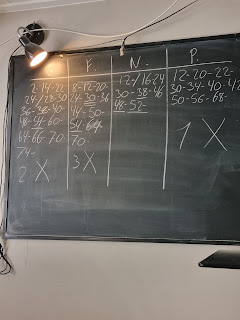 F. N. P.
2-14-22-
24/28-30
36-38-42-
48-54-60-
64-66-70-
74-
2 X
8-12-20-
24-30-36
42-50-
54-64-
70-
3 X
12/16-24
30-38-46
48-52-
12-20-22-
30-34-40-42
50-56-68-
1 X